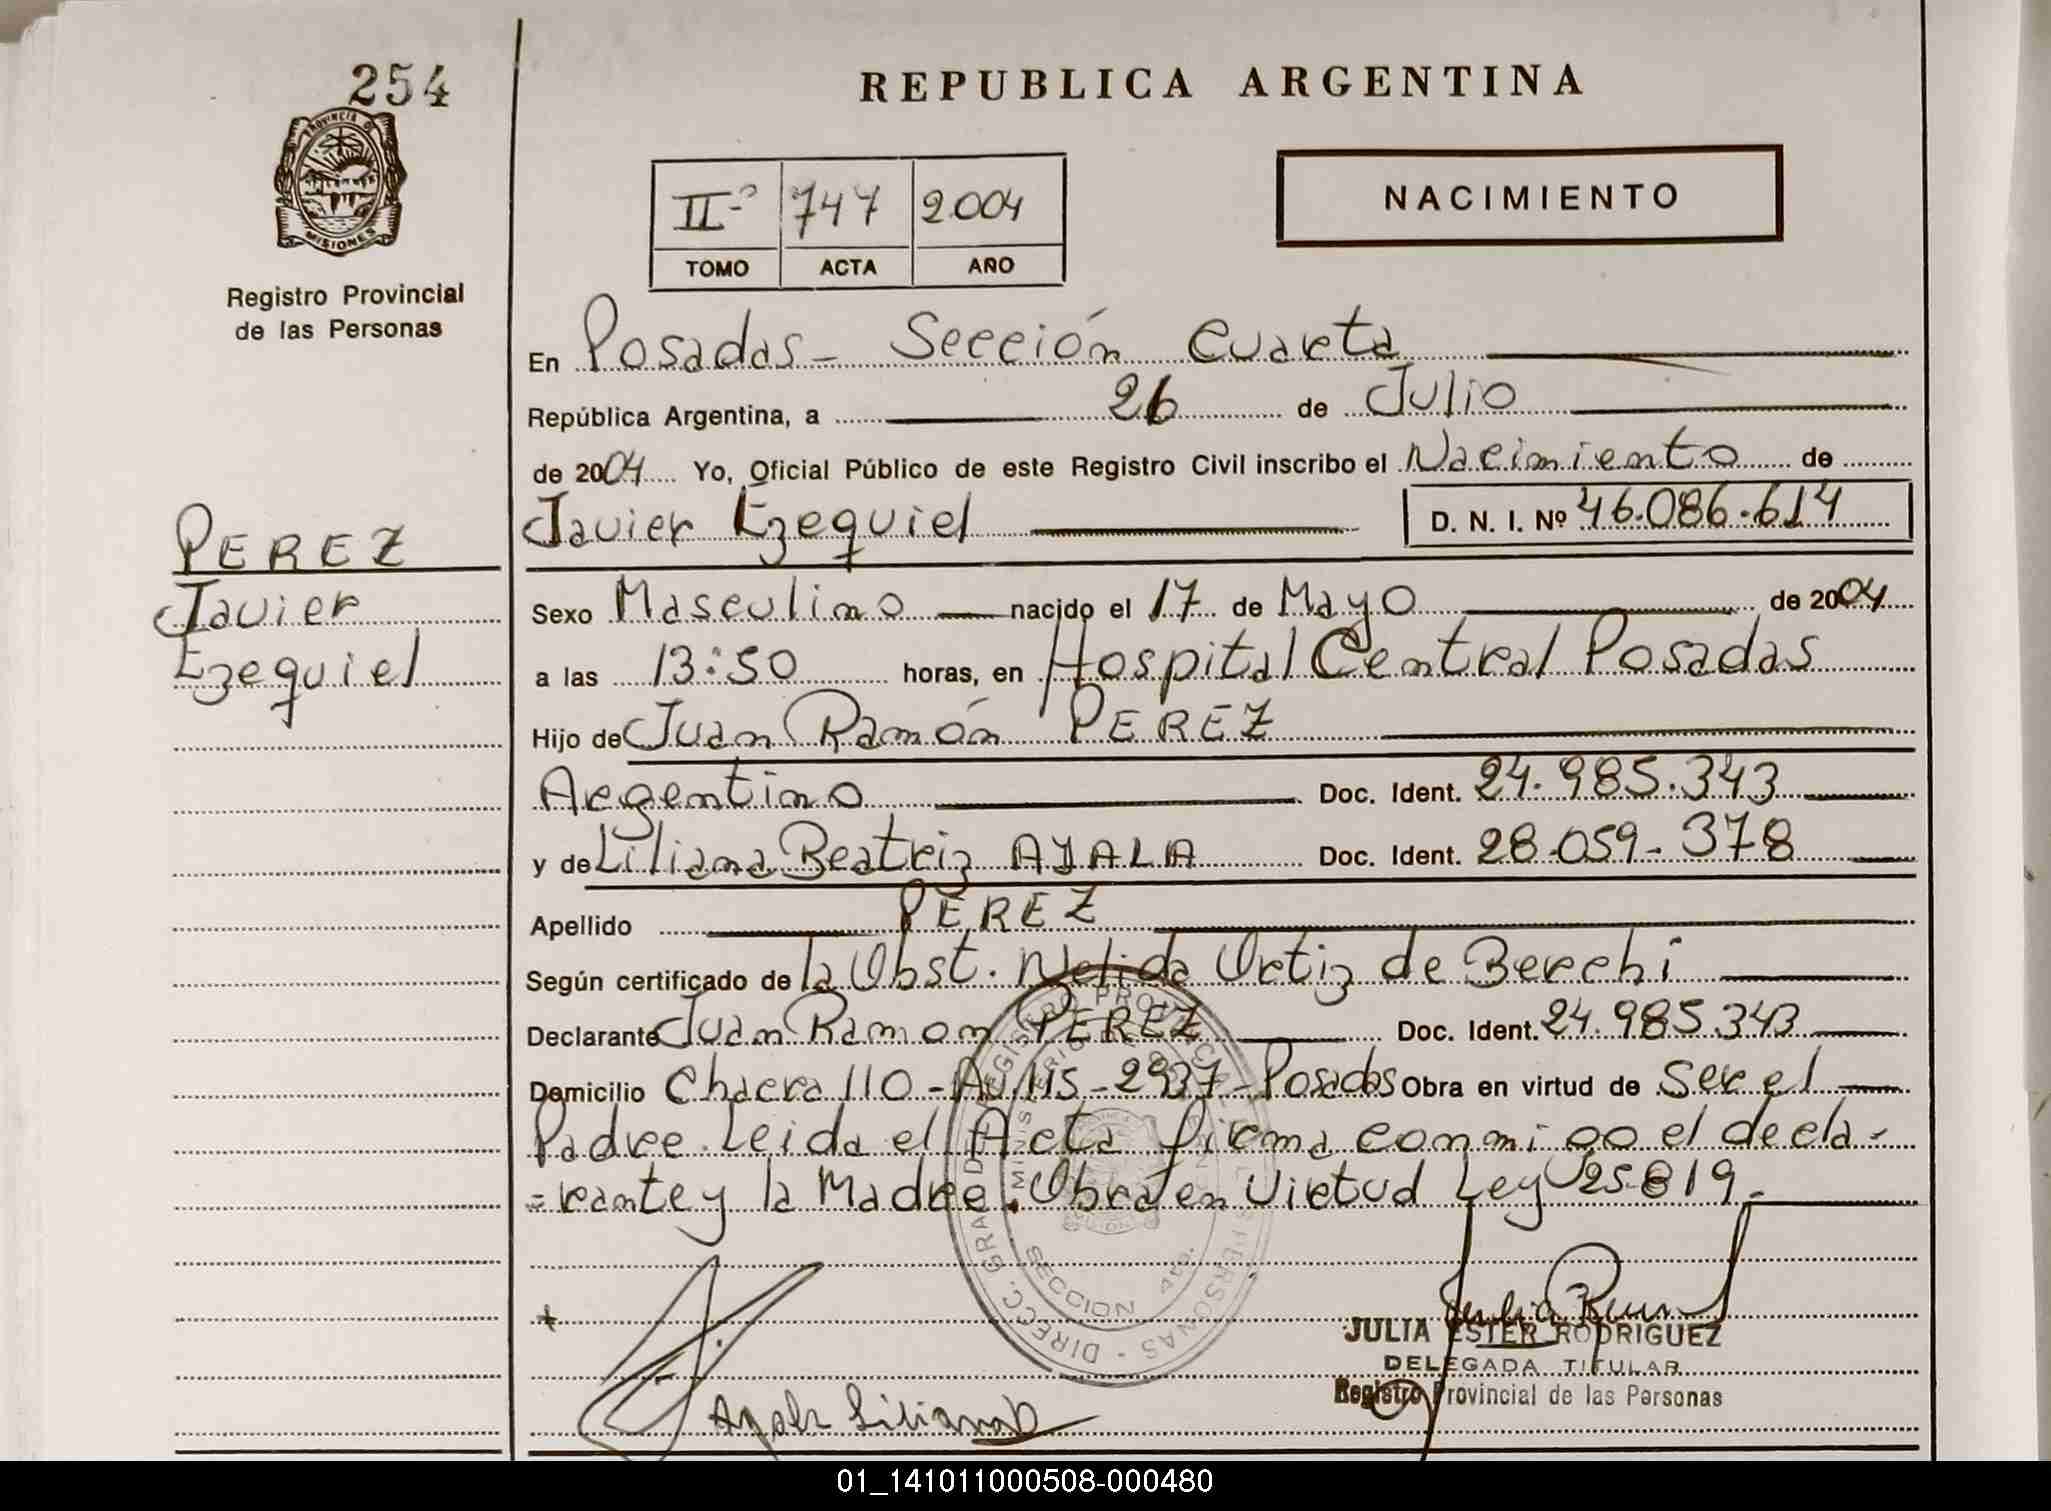 254
PROVINCIA DE
MISIONES
Registro Provincial
de las Personas
PEREZ
Javier
Ezequiel
REPUBLICA ARGENTINA
II-º 747 2004
TOMO ACTA AÑO
NACIMIENTO
En Posadas- Sección Cuarta
República Argentina, a 26 de Julio
de 2004 Yo, Oficial Público de este Registro Civil inscribo el Nacimiento de
Javier Ezequiel D. N. I. Nº 46.086.614
Sexo Masculino nacido el 17 de Mayo de 2004
a las 13:50 horas, en Hospital Central Posadas
Hijo de Juan Ramón PEREZ
Argentino Doc. Ident. 24.985.343
y de Liliana Beatriz AYALA Doc. Ident. 28.059.378
Apellido PEREZ
Según certificado de la Obst. Nelida Ortiz de Berchi
Declarante Juan Ramon PEREZ Doc. Ident. 24.985.343
Domicilio Chacra 110 - Av. 115 - 2937 - Posadas Obra en virtud de Ser el
Padre. Leida el Acta firma conmigo el decla-
=rante y la Madre. Obra en Virtud Ley 25.819.-
SECCION 4ta.
Ayala Liliana B
JULIA ESTER RODRIGUEZ
DELEGADA TITULAR
Registro Provincial de las Personas
01_141011000508-000480